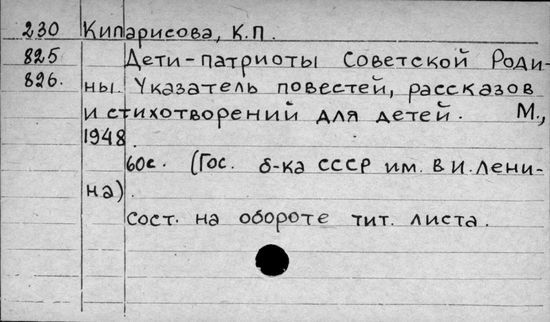 230 Кипарисова, К.П.
825 Дети-патриоты Советской Роди-
826. ны. Указатель повестей, рассказов
и стихотворений для детей. М.,
1948.
60с. (Гос. б-ка СССР им. В.И.Лени-
на).
Сост. на обороте тит. листа.